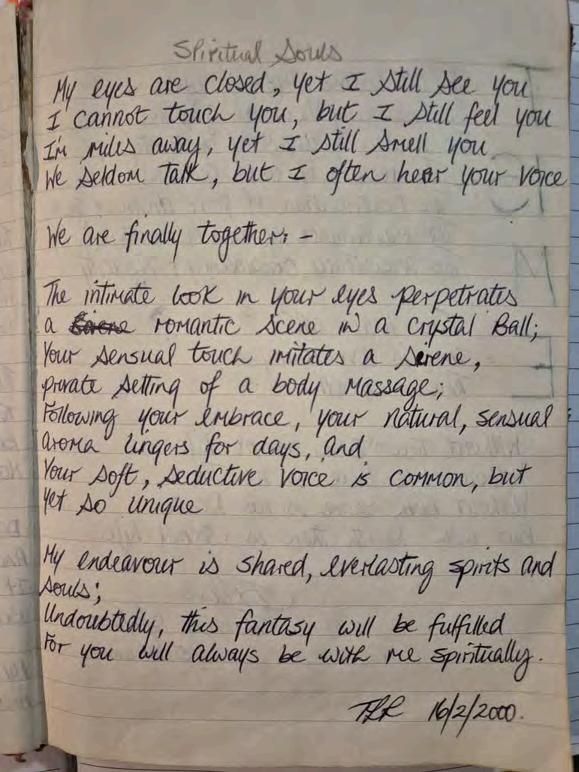 Spiritual Souls
My eyes are closed, yet I still see you
I cannot touch you, but I still feel you
I'm miles away, yet I still smell you
We seldom talk, but I often hear your voice
We are finally together: -
The intimate look in your eyes perpetrates
a romantic scene in a crystal Ball;
Your sensual touch imitates a serene,
private setting of a body massage;
Following your embrace, your natural, sensual
aroma lingers for days, and
Your soft, seductive voice is common, but
yet so unique
My endeavour is shared, everlasting spirits and
souls;
Undoubtedly, this fantasy will be fulfilled
For you will always be with me spiritually.
16/2/2000.